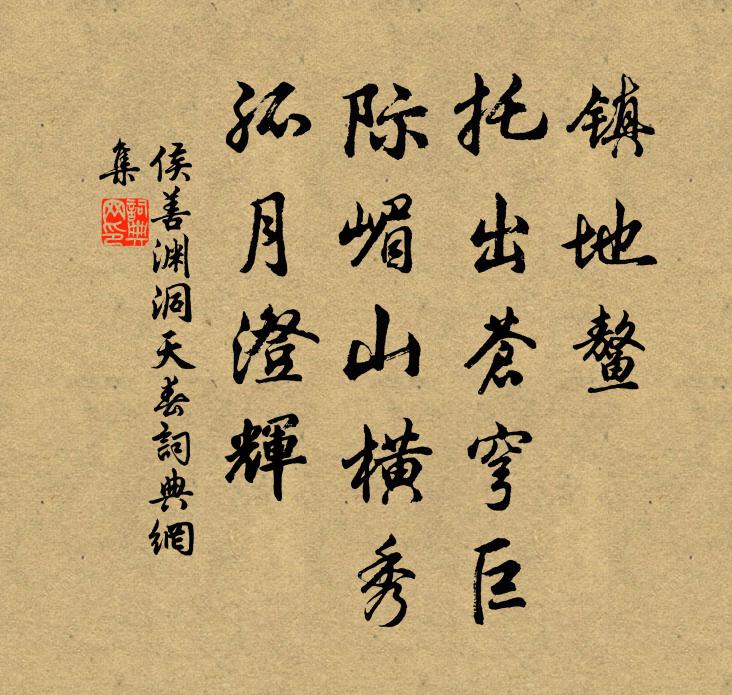 镇地鳌
托出苍穹巨
际嵋山横秀
孤月澄辉
侯善渊洞天春詞典網
集
詞典网印